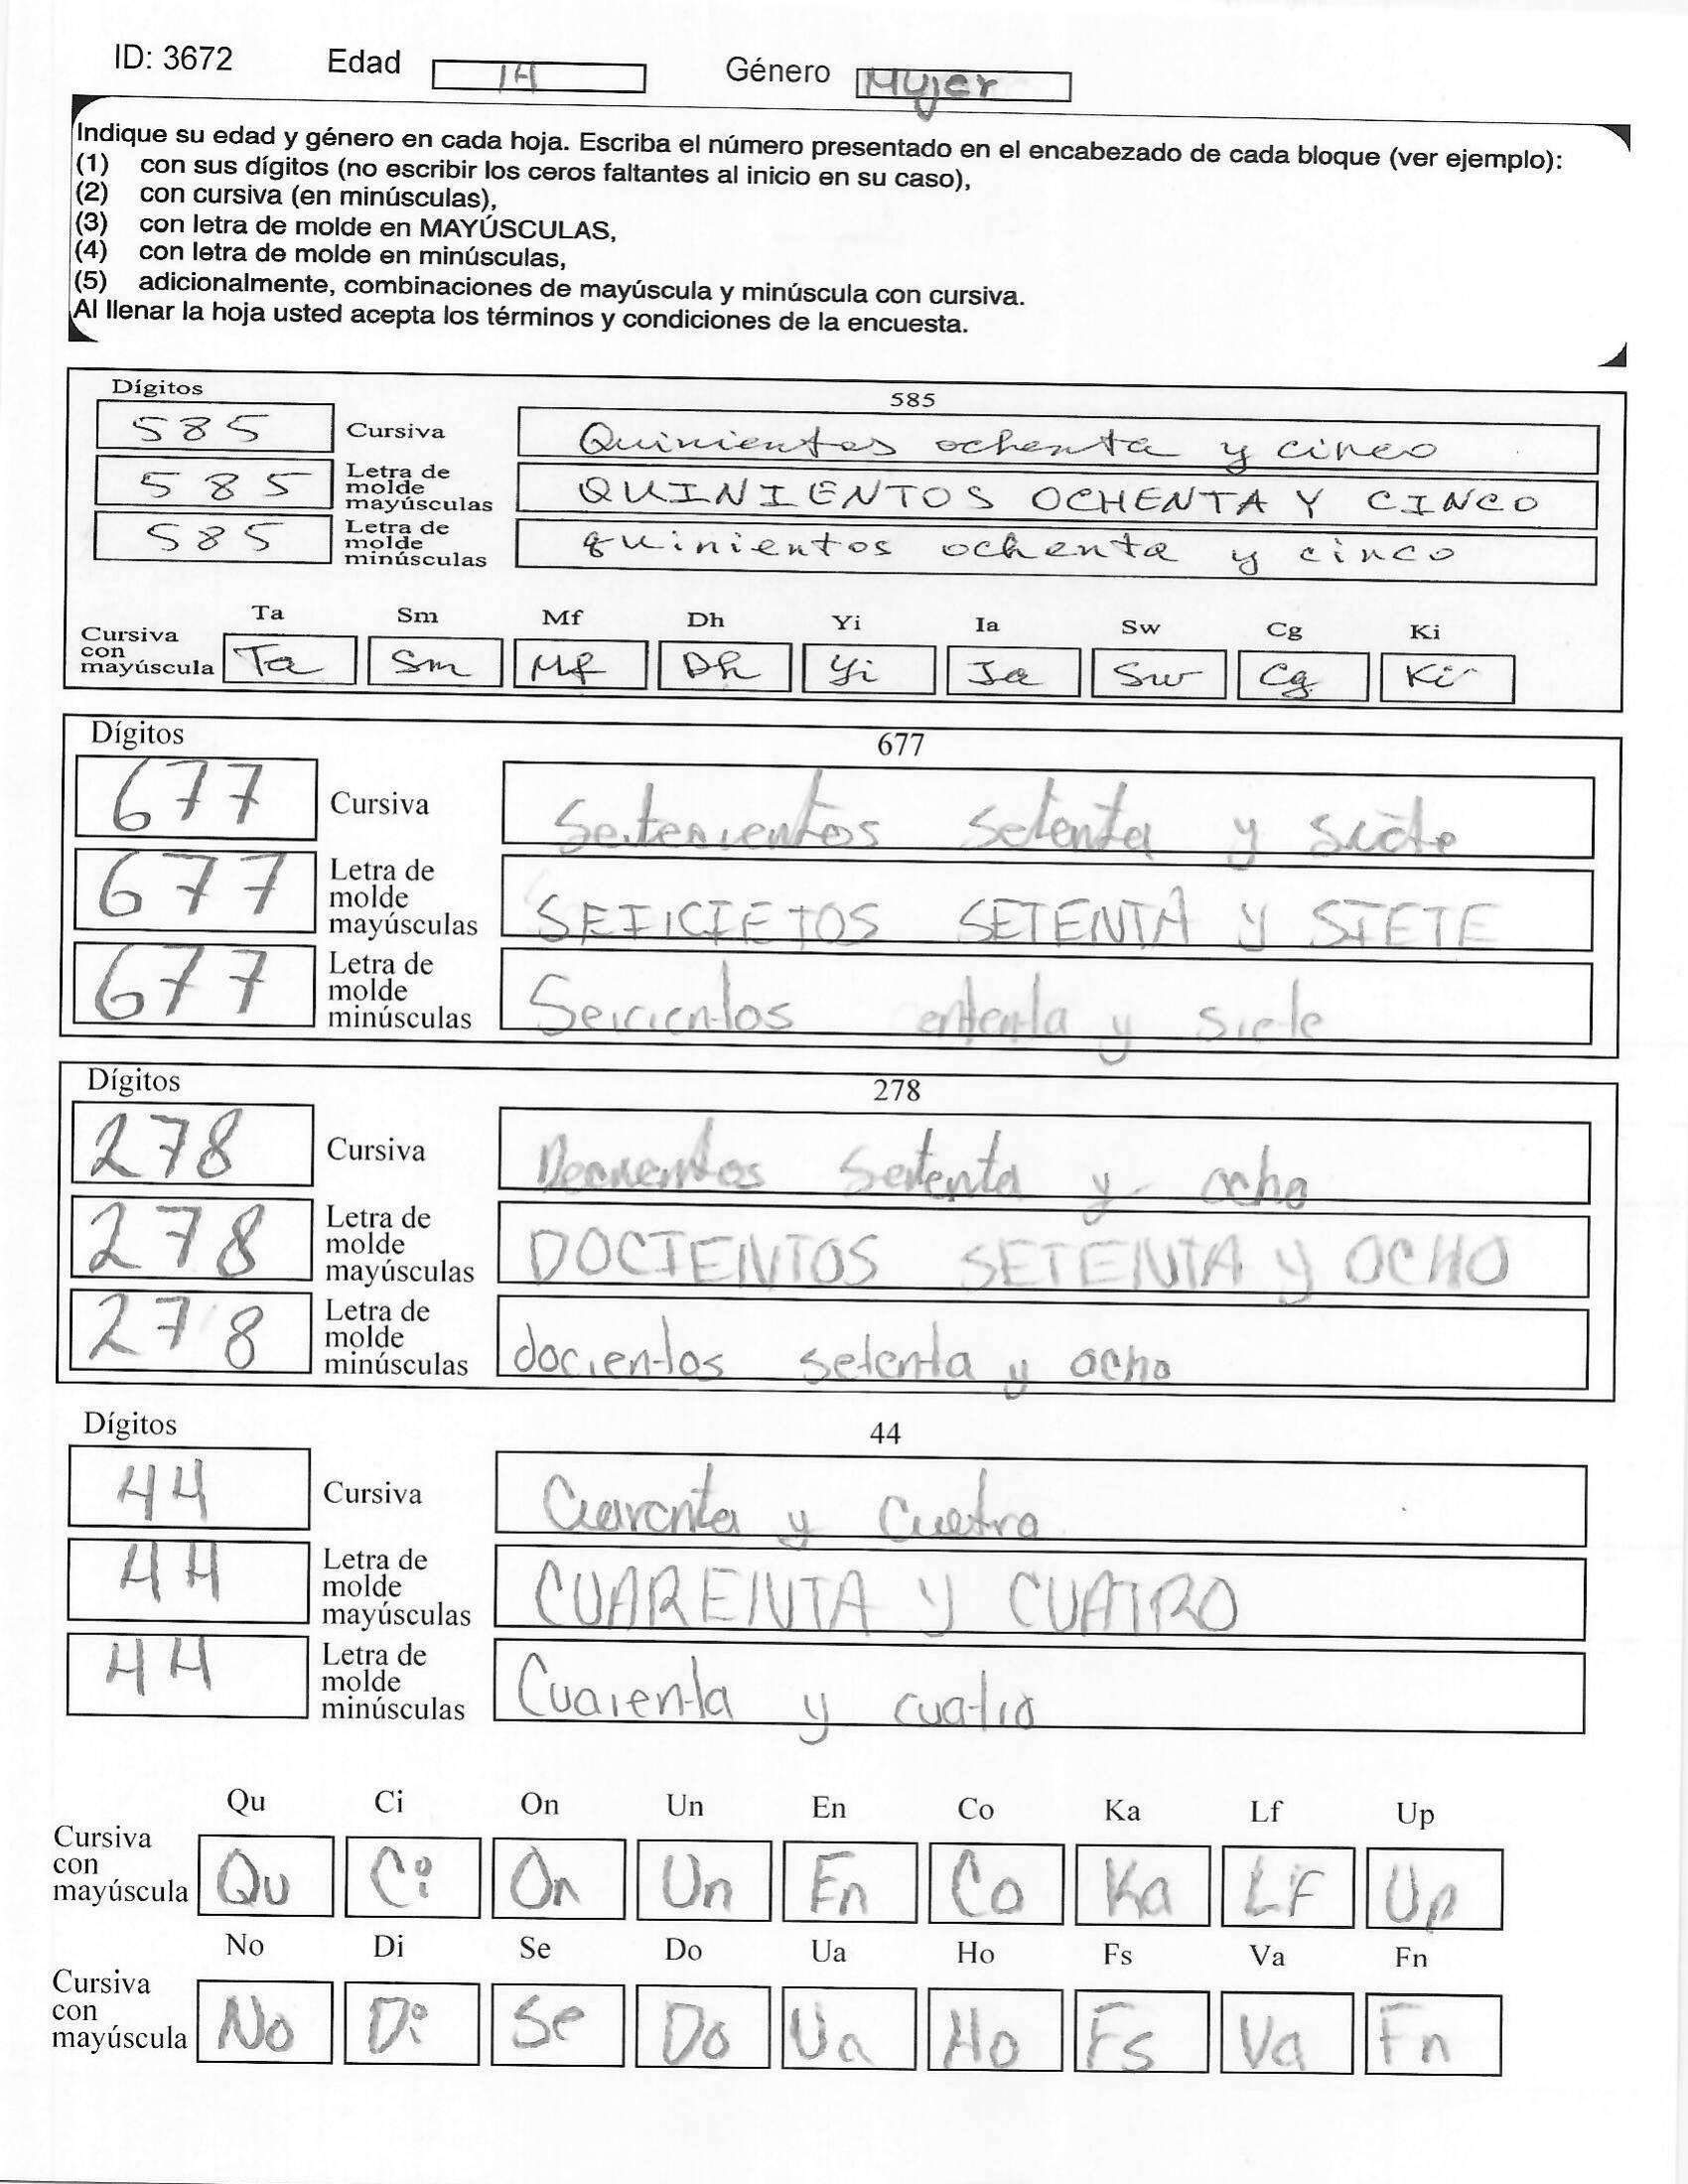 ID: 3672 Edad 14 Género Mujer
Indique su edad y género en cada hoja. Escriba el número presentado en el encabezado de cada bloque (ver ejemplo):
(1) con sus dígitos (no escribir los ceros faltantes al inicio en su caso),
(2) con cursiva (en minúsculas),
(3) con letra de molde en MAYÚSCULAS,
(4) con letra de molde en minúsculas,
(5) adicionalmente, combinaciones de mayúscula y minúscula con cursiva.
Al llenar la hoja usted acepta los términos y condiciones de la encuesta.
Dígitos 585
585 Cursiva Quinientos ochenta y cinco
585 Letra de molde mayúsculas QUINIENTOS OCHENTA Y CINCO
585 Letra de molde minúsculas quinientos ochenta y cinco
Ta Sm Mf Dh Yi Ia Sw Cg Ki
Cursiva con mayúscula Ta Sm Mf Dh Yi Ia Sw Cg Ki
Dígitos 677
677 Cursiva setenta y siete
677 Letra de molde mayúsculas SETENTA y SIETE
677 Letra de molde minúsculas Seicientos y siete
Dígitos 278
278 Cursiva y ocho
278 Letra de molde mayúsculas DOCIENTOS SETENTA y OCHO
278 Letra de molde minúsculas docientos setenta y ocho
Dígitos 44
44 Cursiva Cuarenta y Cuatro
44 Letra de molde mayúsculas CUARENTA y CUATRO
44 Letra de molde minúsculas Cuarenta y cuatro
Qu Ci On Un En Co Ka Lf Up
Cursiva con mayúscula Qu Ci On Un En Co Ka LF Up
No Di Se Do Ua Ho Fs Va Fn
Cursiva con mayúscula No Di Se Do Ua Ho Fs Va Fn